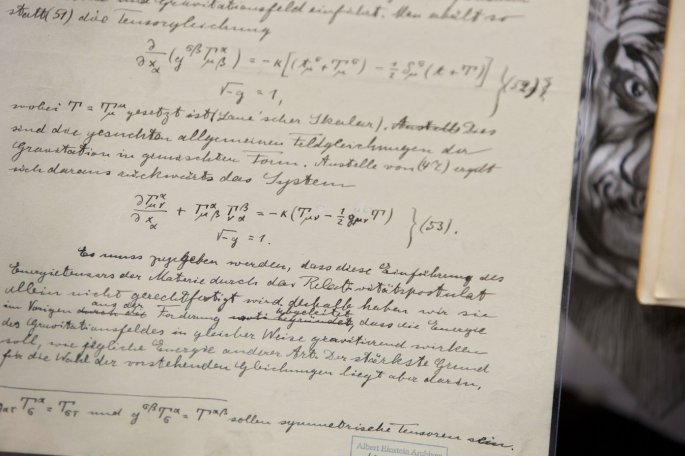 Gravitationsfeld einführt. Man erhält so
statt (51) die Tensorgleichung
∂/∂x_α (g^{σβ} Γ^α_{μβ}) = -κ[(t_μ^σ + T_μ^σ) - ½ δ_μ^σ (t + T)]
√-g = 1,
} (52)
wobei T = T_μ^μ gesetzt ist (Laue'scher Skalar). Dies
sind die gesuchten allgemeinen Feldgleichungen der
Gravitation in gemischter Form. Anstelle von (47) ergibt
sich daraus rückwärts das System
∂Γ^α_{μν}/∂x_α + Γ^α_{μβ} Γ^β_{να} = -κ(T_{μν} - ½ g_{μν} T)
√-g = 1.
} (53).
Es muss zugegeben werden, dass diese Einführung des
Energietensors der Materie durch das Relativitätspostulat
allein nicht gerechtfertigt wird; deshalb haben wir sie
im Vorigen aus der Forderung abgeleitet, dass die Energie
des Gravitationsfeldes in gleicher Weise gravitierend wirken
soll, wie jegliche Energie anderer Art. Der stärkste Grund
für die Wahl der vorstehenden Gleichungen liegt aber darin,
T_σ^α = T_{στ} und g^{σβ} T_σ^α = T^{αβ} sollen symmetrische Tensoren sein.
Albert Einstein Archives